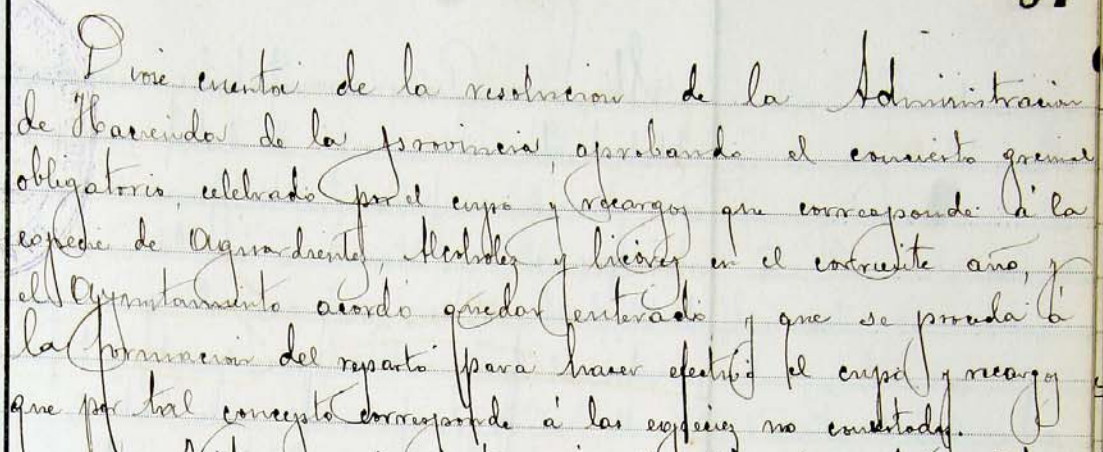 Diose cuenta de la resolucion de la Administracion
de Hacienda de la provincia, aprobando el concierto gremial
obligatorio, celebrado por el cupo y recargos que corresponde á la
especie de Aguardientes, Alcoholes y licores en el corriente año, y
el Ayuntamiento acordó quedar enterado y que se proceda á
la formacion del reparto para hacer efectivo el cupo y recargos
que por tal concepto corresponde á las especies no concertadas.